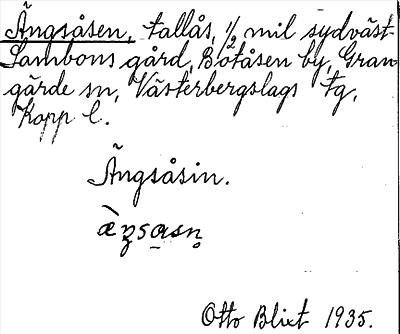 Ängsåsen, tallås, 1/2 mil sydväst
Lambons gård, Botåsen by, Gran
gärde sn, Västerbergslags tg,
Kopp l.
Ängsåsin.
Otto Blixt 1935.